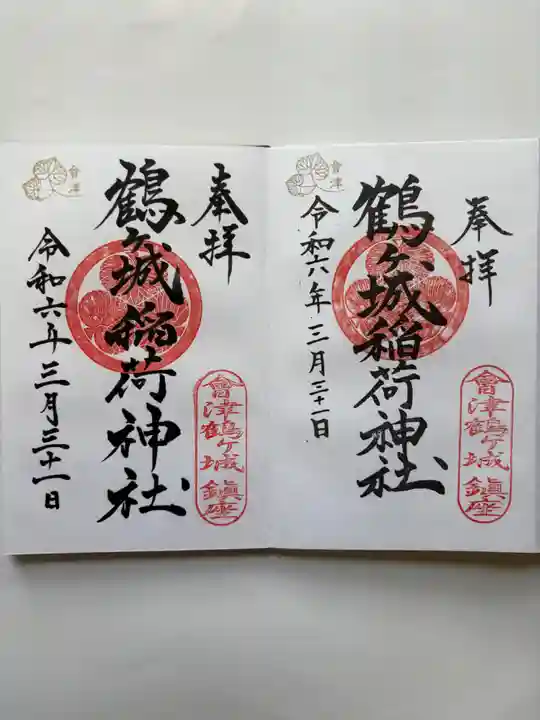 奉拝
鶴ヶ城稲荷神社
令和六年三月三十一日
會津鶴ヶ城鎮座
會津
奉拝
鶴ヶ城稲荷神社
令和六年三月三十一日
會津鶴ヶ城鎮座
會津